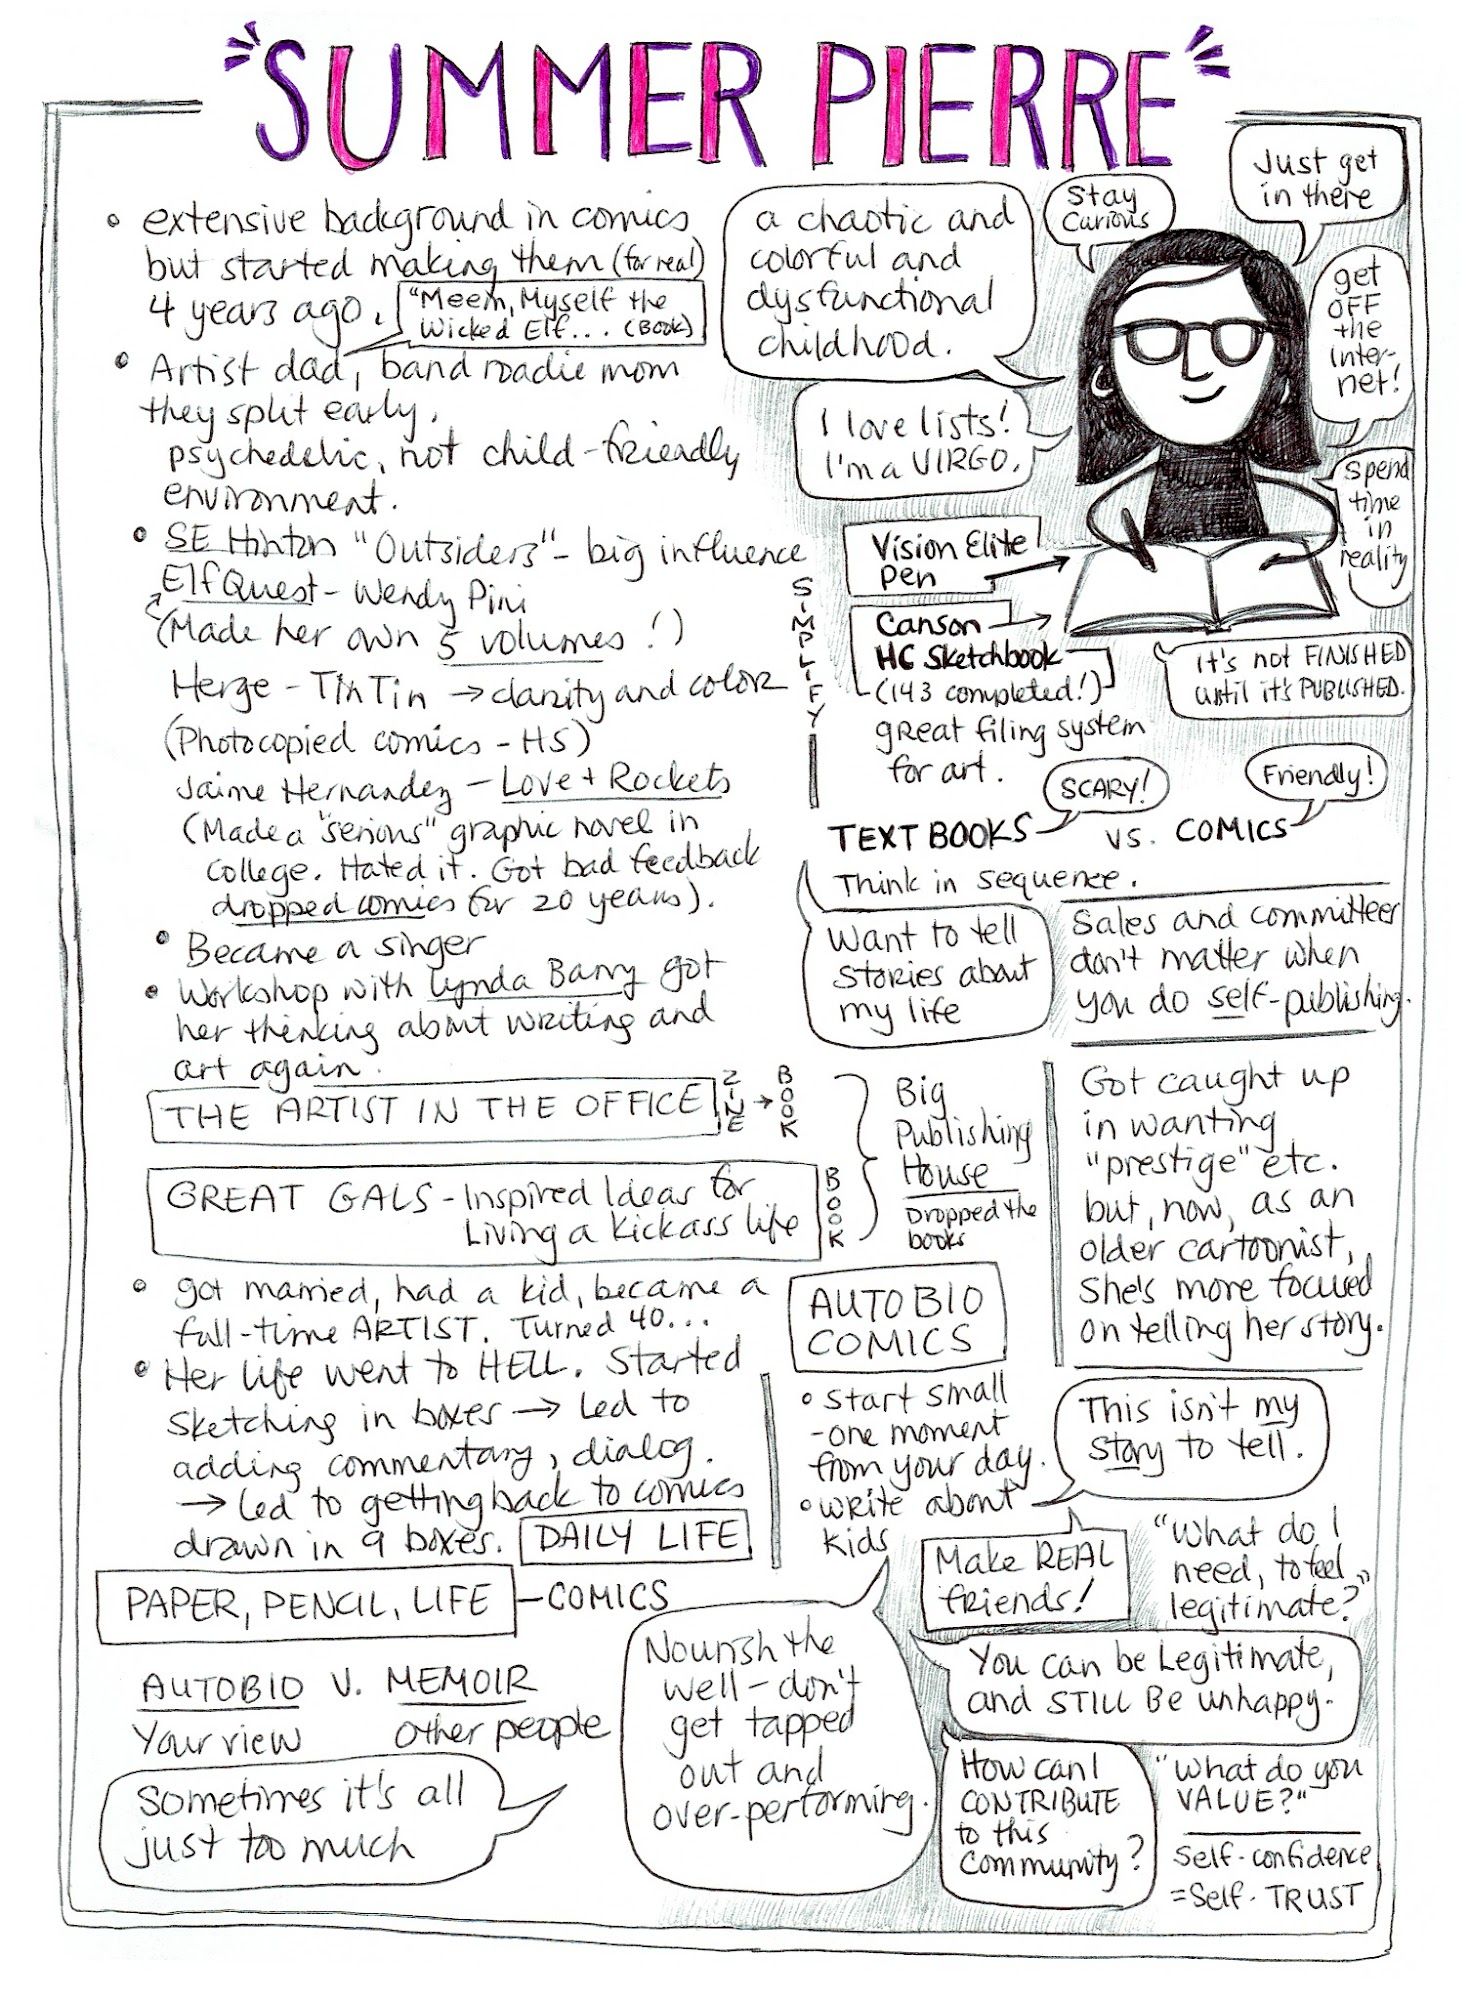 "SUMMER PIERRE"
• extensive background in comics
but started making them (for real)
4 years ago.
"Meem, Myself the
Wicked Elf... (BOOK)
• Artist dad, band roadie mom
they split early.
psychedelic, not child-friendly
environment.
• SE Hinton "Outsiders" - big influence
ElfQuest - Wendy Pini
(Made her own 5 volumes!)
Herge - TinTin → clarity and color
(Photocopied comics - HS)
Jaime Hernandez - Love + Rockets
(Made a "serious" graphic novel in
college. Hated it. Got bad feedback
dropped comics for 20 years).
• Became a singer
• Workshop with Lynda Barry got
her thinking about writing and
art again.
THE ARTIST IN THE OFFICE
ZINE → BOOK
GREAT GALS - Inspired Ideas for
Living a Kickass life
BOOK
Big
Publishing
House
Dropped the
books
• got married, had a kid, became a
full-time ARTIST. Turned 40...
• Her life went to HELL. Started
sketching in boxes → led to
adding commentary, dialog.
→ Led to getting back to comics
drawn in 9 boxes. DAILY LIFE
PAPER, PENCIL, LIFE - COMICS
AUTOBIO V. MEMOIR
Your view other people
Sometimes it's all
just too much
a chaotic and
colorful and
dysfunctional
childhood.
Stay
Curious
Just get
in there
get
OFF
the
inter-
net!
I love lists!
I'm a VIRGO.
Spend
time
in
reality
Vision Elite
Pen
SIMPLIFY
Canson
HC Sketchbook
(143 completed!)
great filing system
for art.
it's not FINISHED
until it's PUBLISHED.
SCARY!
Friendly!
TEXT BOOKS VS. COMICS
Think in sequence.
Want to tell
stories about
my life
Sales and committeer
don't matter when
you do self-publishing.
Got caught up
in wanting
"prestige" etc.
but, now, as an
older cartoonist,
she's more focused
on telling her story.
AUTOBIO
COMICS
• start small
- one moment
from your day.
• write about
kids
This isn't my
story to tell.
Make REAL
friends!
"What do I
need, to feel
legitimate?"
Nourish the
well - don't
get tapped
out and
over-performing.
You can be Legitimate,
and STILL Be unhappy.
How can I
CONTRIBUTE
to this
community?
"What do you
VALUE?"
Self-confidence
= Self-TRUST